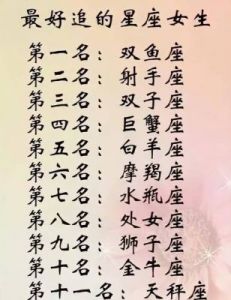 最好追的星座女生
第一名：双鱼座
第二名：射手座
第三名：双子座
第四名：巨蟹座
第五名：白羊座
第六名：摩羯座
第七名：水瓶座
第八名：处女座
第九名：狮子座
第十名：金牛座
第十一名：天秤座